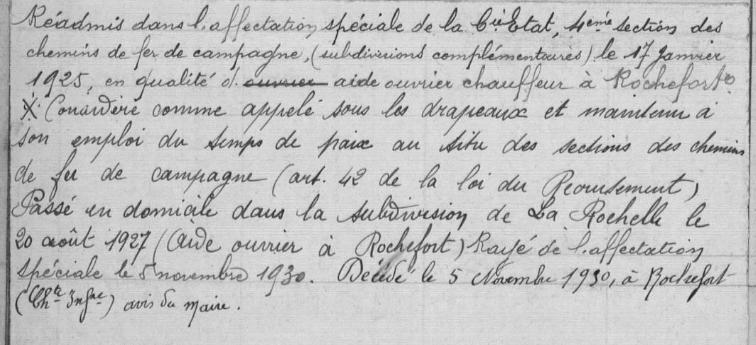 Réadmis dans l'affectation spéciale de la Cie Etat, 4eme section des
chemins de fer de campagne, (subdivisions complémentaires) le 17 Janvier
1925, en qualité d. ouvrier aide ouvrier chauffeur à Rochefort
X. Considéré comme appelé sous les drapeaux et maintenu à
son emploi du temps de paix au titu des sections des chemins
de fer de campagne (art. 42 de la loi du Recrutement)
Passé en domicile dans la subdivision de La Rochelle le
20 août 1927 (Aide ouvrier à Rochefort) Rayé de l'affectation
spéciale le 5 novembre 1930. Décédé le 5 Novembre 1930, à Rochefort
(Chte Infre) avis du maire.